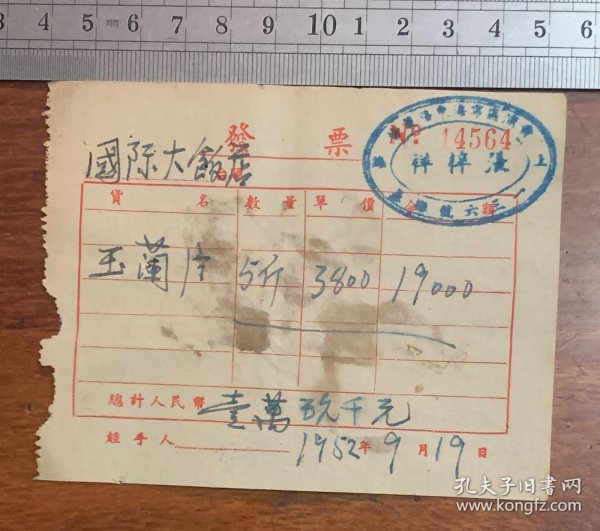 3 4 5 mm 6 7 8 9 10 1 2 3 4 5 6
發 票 No 14564
張梓祥
國际大飯店
貨 名 數 量 單 價 金 額
玉蘭片 5斤 3800 19000
總計人民幣 壹萬玖千元
經手人 1952年9月19日
孔夫子旧书网
www.kongfz.com